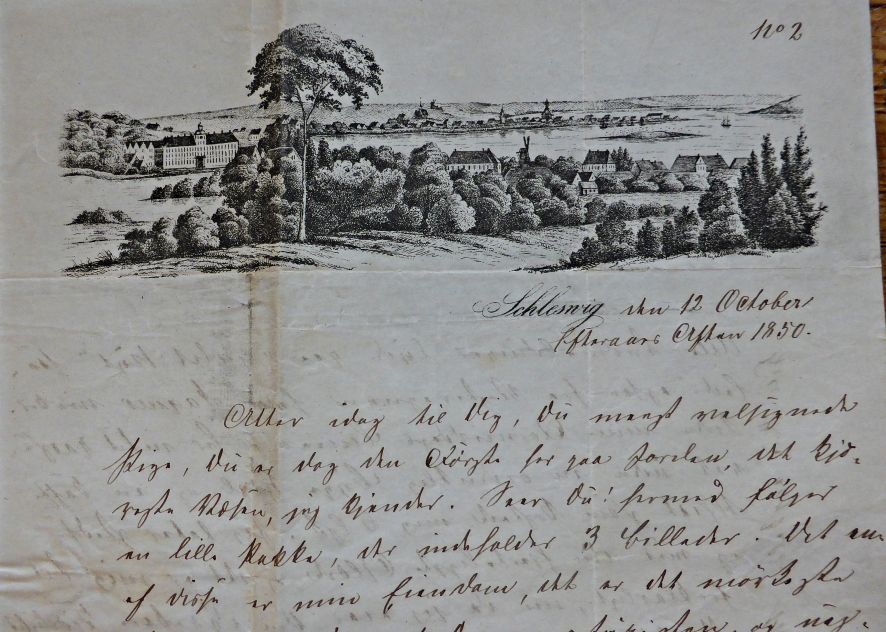 No 2
Schleswig den 12 October
Efteraars Aften 1850.
Atter idag til Dig, Du meest velsignede
Pige, Du er dog den Første her paa Jorden, det kjæ-
reste Væsen, jeg kjender. Seer Du! hermed følger
en lille Pakke, der indeholder 3 Billeder. Det ene
af disse er min Eiendom, det er det mørkeste
og